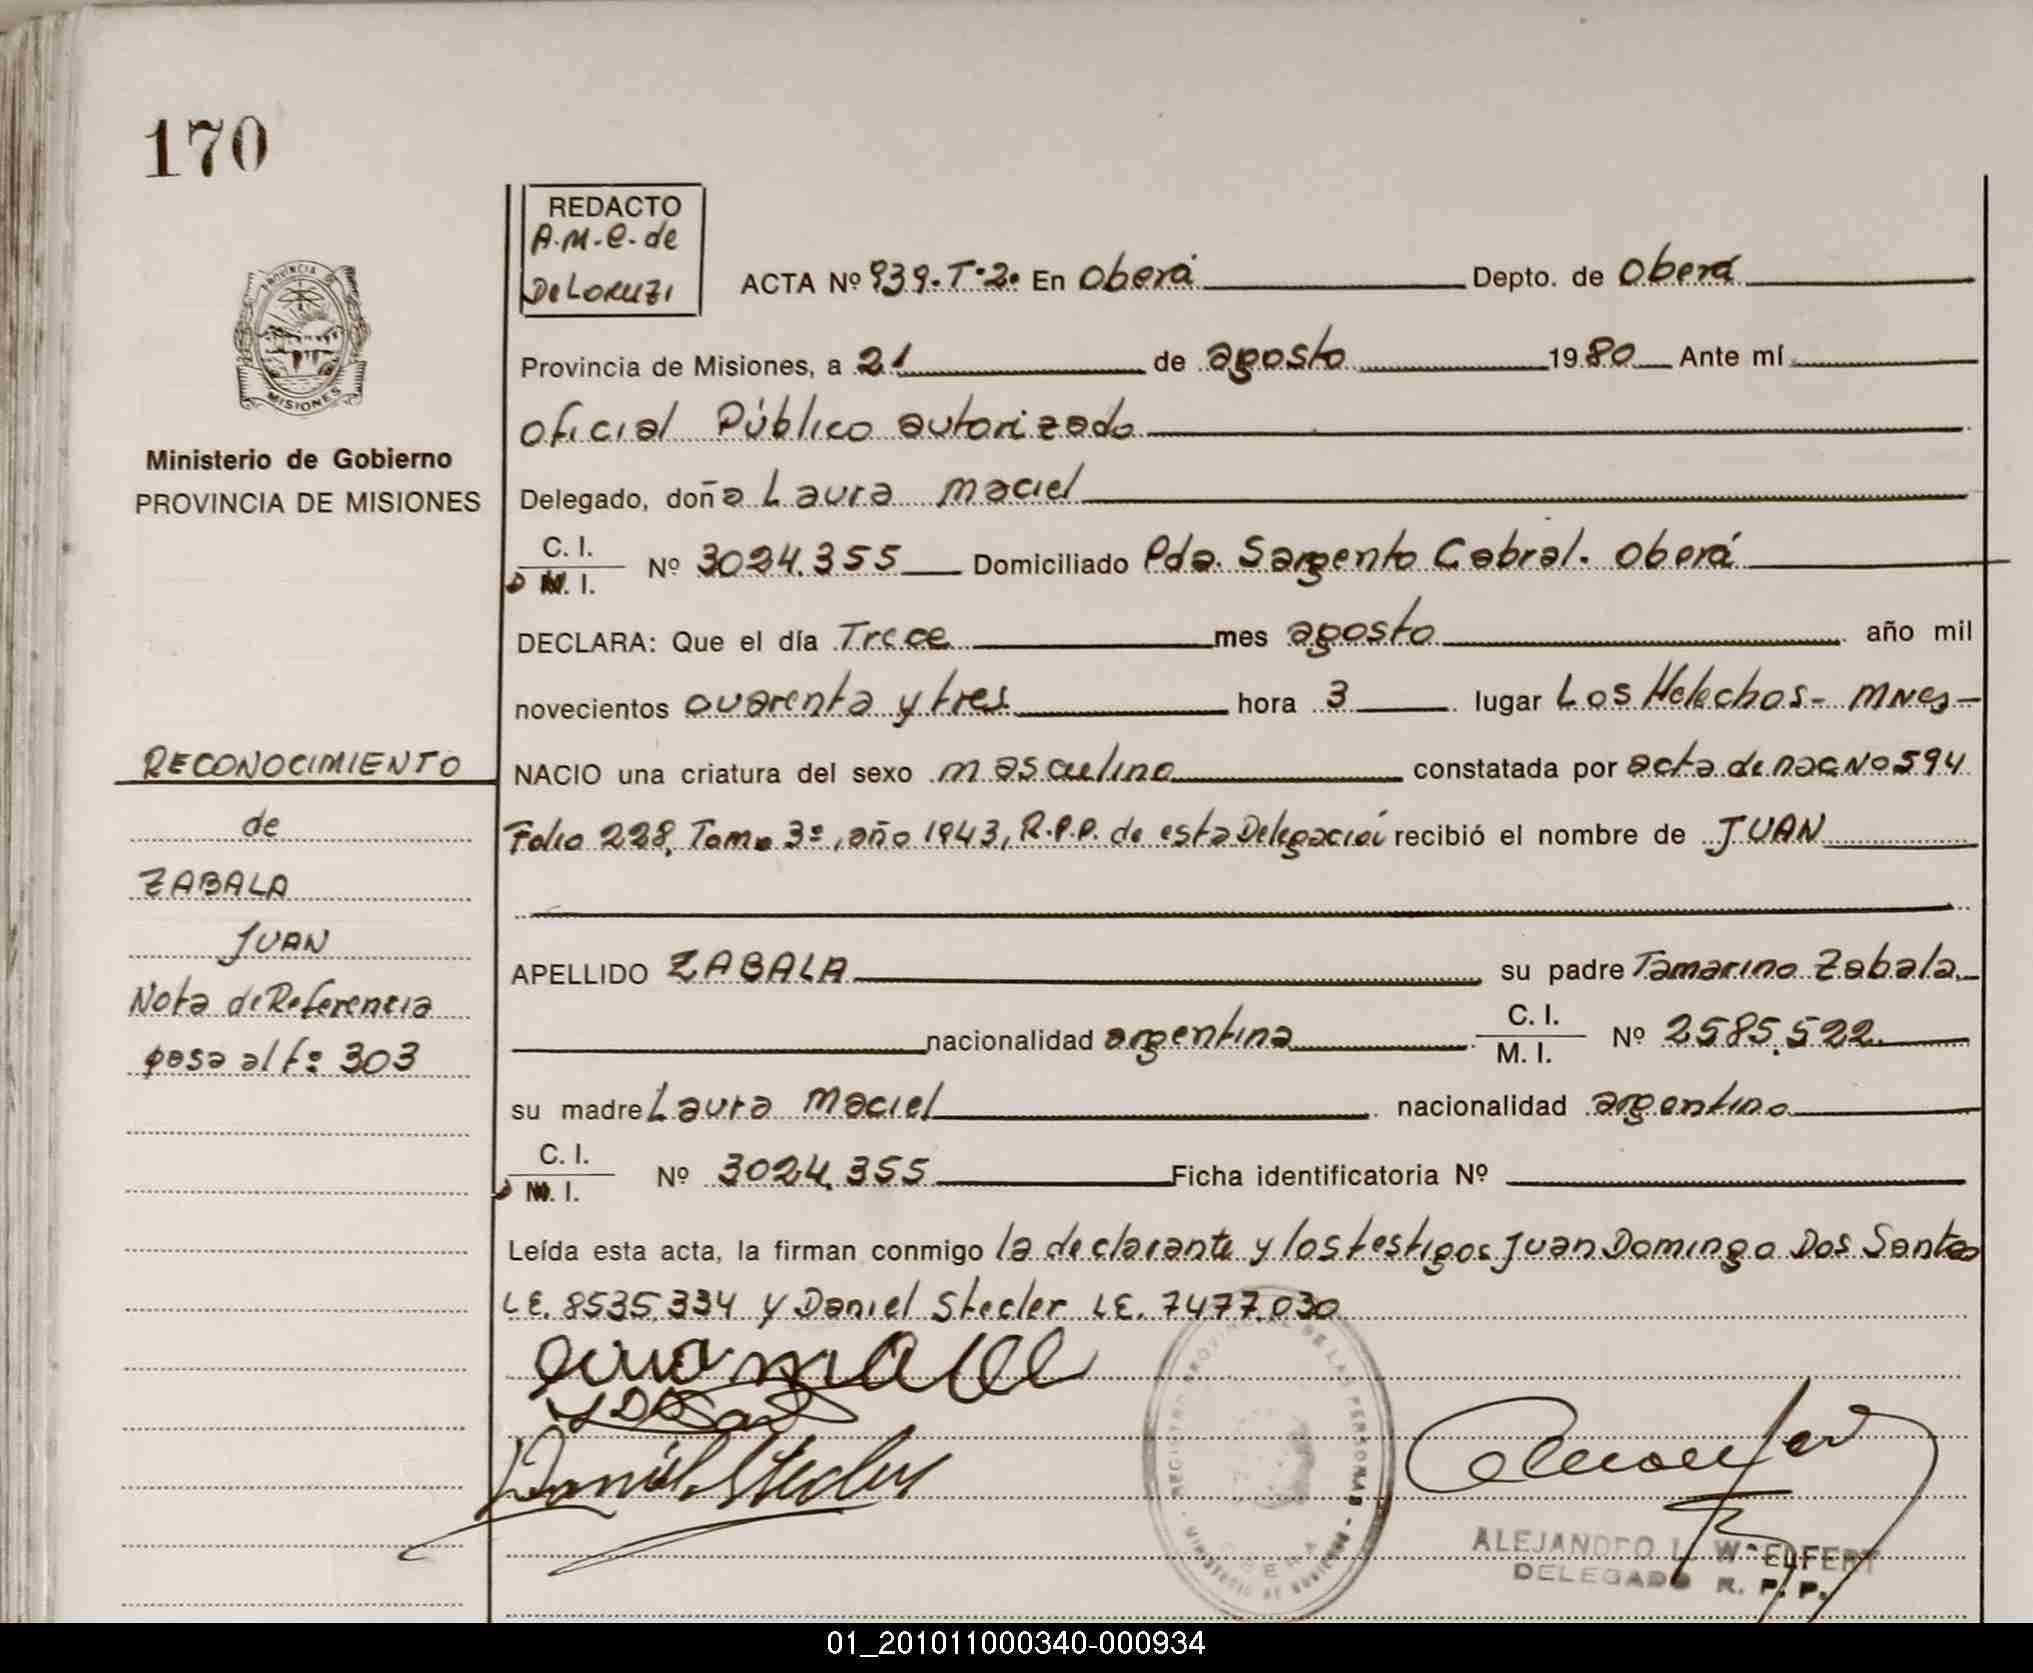 170
REDACTO
A.M.C. de
De Loruzi
ACTA Nº 939. Tº 2º En Oberá Depto. de Oberá
Provincia de Misiones, a 21 de agosto 1980 Ante mí
Oficial Público autorizado
Delegado, doña Laura Maciel
C. I.
D N. I. Nº 3024.355 Domiciliado Pda. Sargento Cabral. Oberá
DECLARA: Que el día Trece mes agosto año mil
novecientos cuarenta y tres hora 3 lugar Los Helechos - MNES -
NACIO una criatura del sexo masculino constatada por acta de nac. No 594
Folio 228, Tomo 3º, año 1943, R.P.P. de esta Delegación recibió el nombre de JUAN
APELLIDO ZABALA su padre Tamarino Zabala
nacionalidad argentina C. I.
M. I. Nº 2585.522
su madre Laura Maciel nacionalidad argentina
C. I.
D N. I. Nº 3024.355 Ficha identificatoria Nº
Leída esta acta, la firman conmigo la declarante y los testigos Juan Domingo Dos Santos
LE. 8535.334 y Daniel Stecler LE. 7477.030
Daniel Stecler
PROVINCIA
MISIONES
Ministerio de Gobierno
PROVINCIA DE MISIONES
RECONOCIMIENTO
de
ZABALA
JUAN
Nota de Referencia
pasa al fº 303
REGISTRO PROVINCIAL DE LAS PERSONAS
MINISTERIO DE GOBIERNO
OBERA
ALEJANDRO L. WELFERT
DELEGADO R. P. P.
01_201011000340-000934